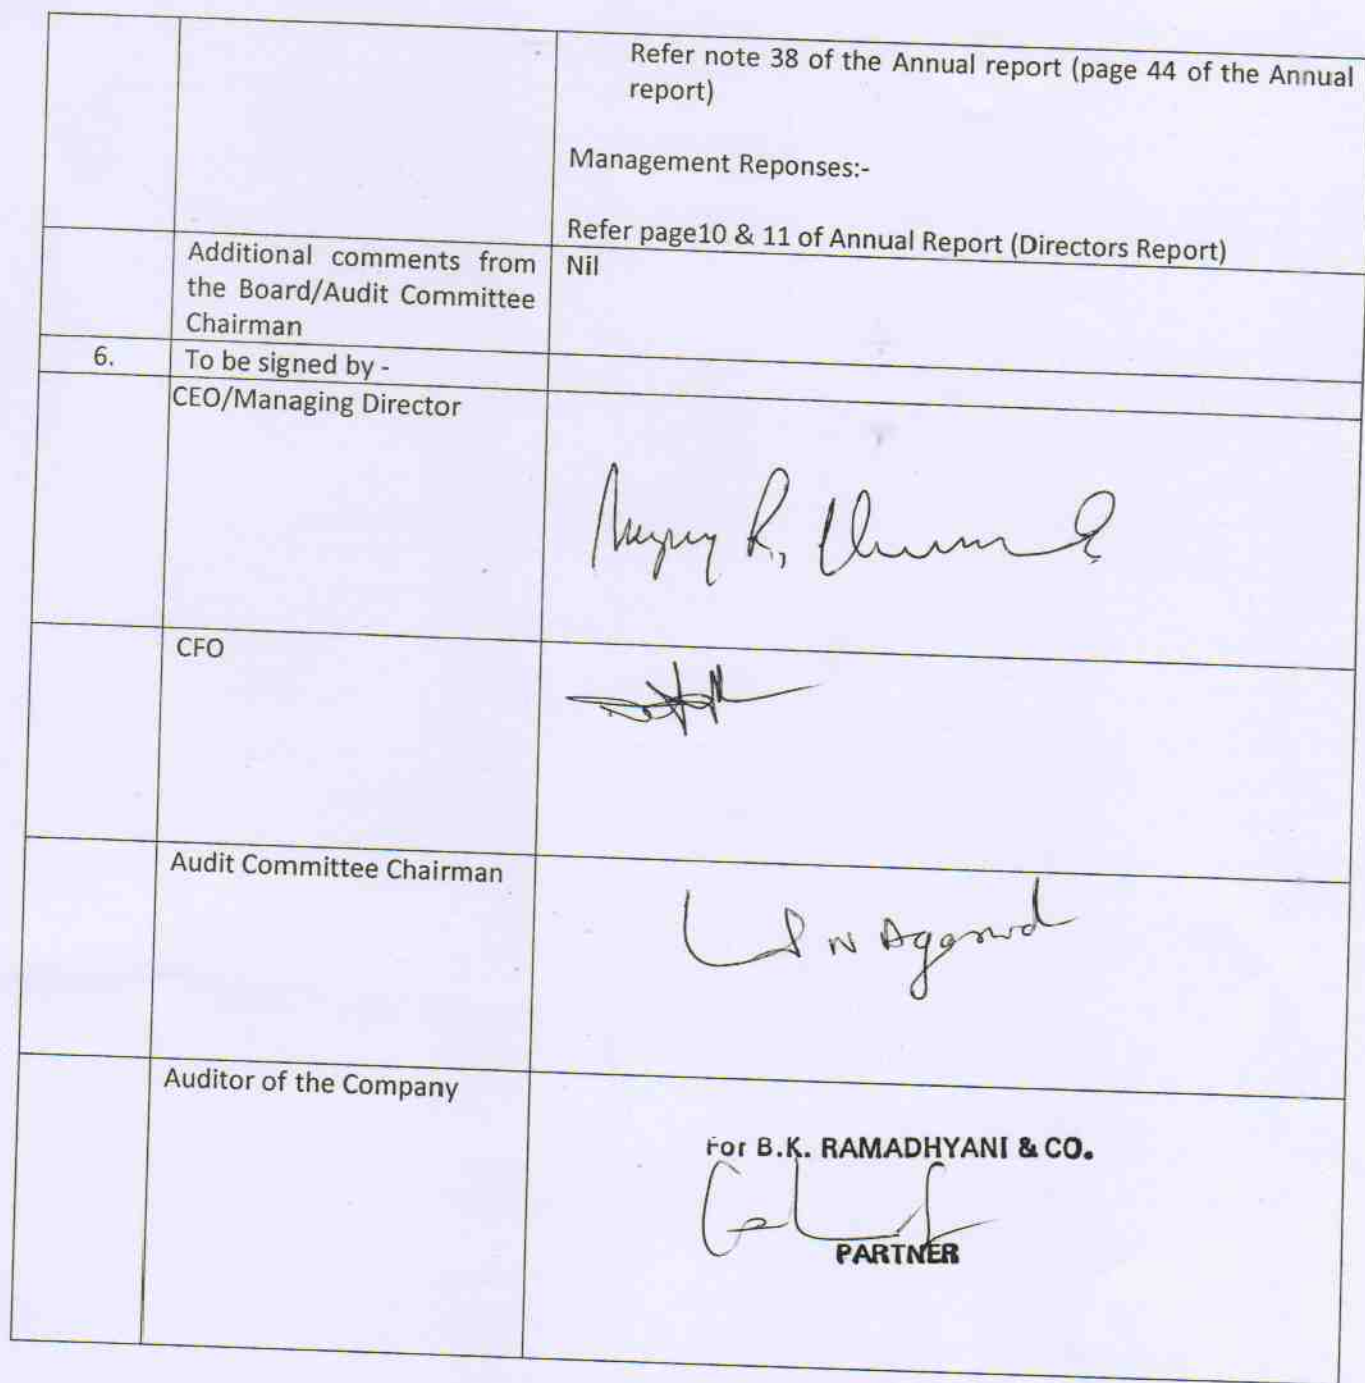 Refer note 38 of the Annual report (page 44 of the Annual
report)
Management Reponses:-
Refer page10 & 11 of Annual Report (Directors Report)
Additional comments from
the Board/Audit Committee
Chairman
Nil
6. To be signed by -
CEO/Managing Director
R.
CFO
Audit Committee Chairman
N Agarwal
Auditor of the Company
For B.K. RAMADHYANI & CO.
PARTNER